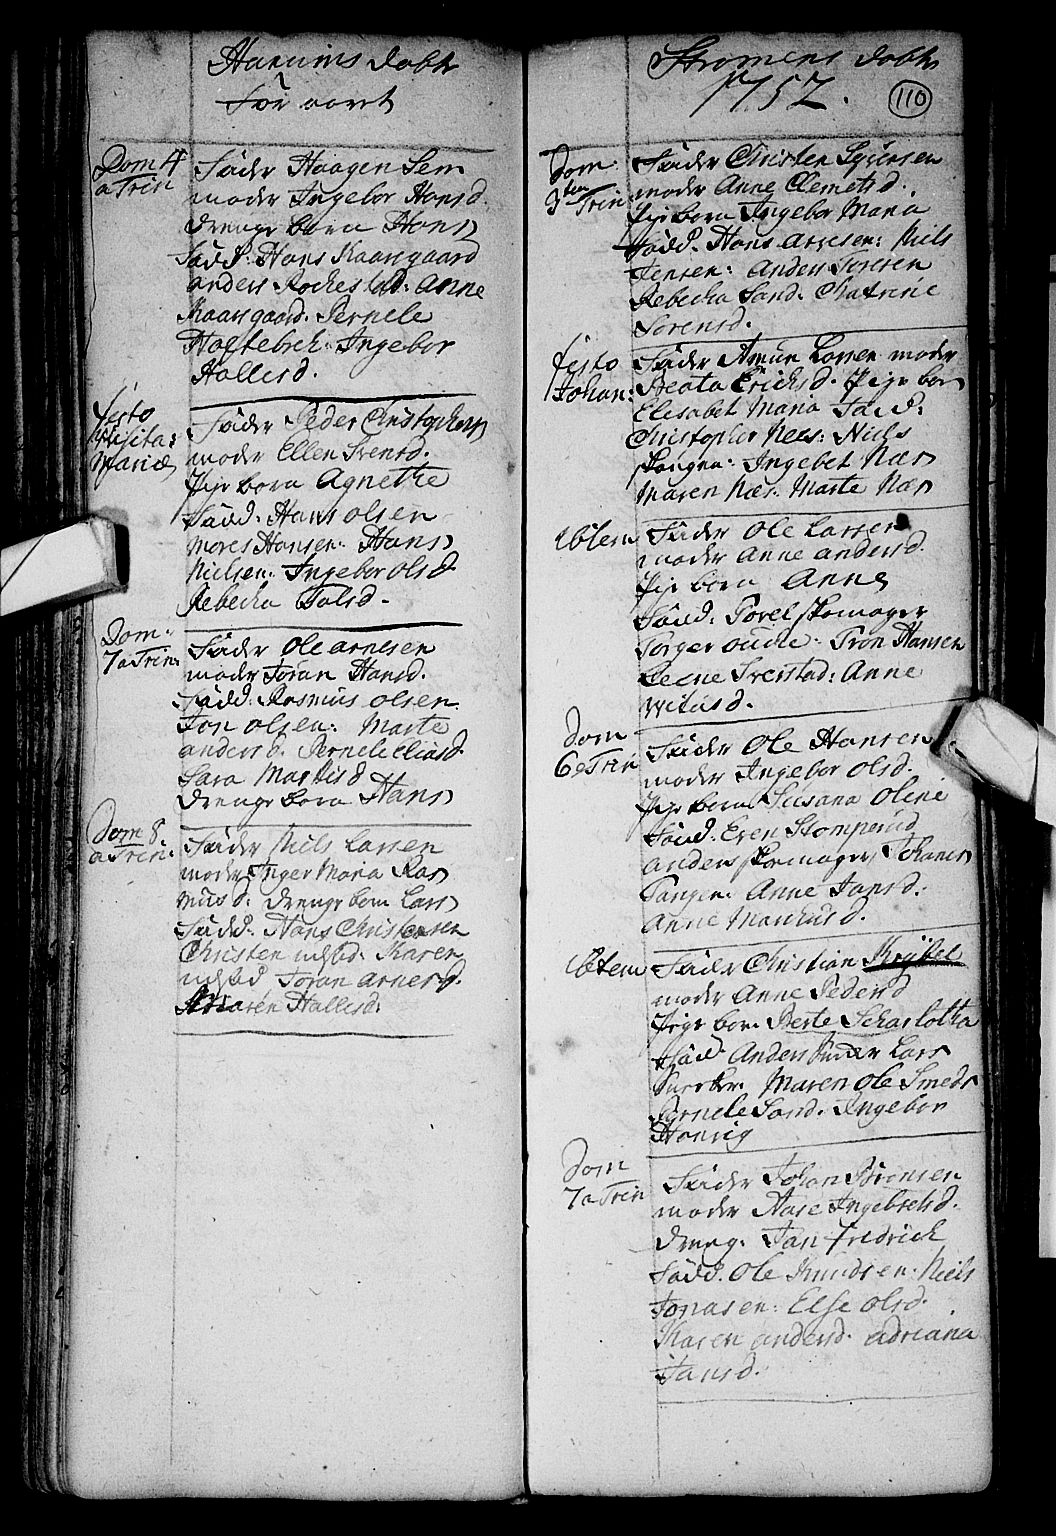 Hanums dobte
for aaret
Dom 4
a Trin
Fader Haagen Sem
moder Ingebor Hansd
drenge barn Hans
fadd: Hans Kaarsgaard
anders Rochestad: Anne
Kaarsgaard: Pernele
Holtebech: Ingebor
Hallesd.
festo
Visita:
Mariæ
Fader Peder Christophers
moder Ellen Svensd.
Pige barn Agnethe
Fadd: Hans olsen
Mores Hansen: Hans
Nielsen: Ingebor olsd
Rebecha Tolsd.
Dom:
7 a Trin:
Fader Ole arnesen
moder Joran Hansd.
Fadd: Rasmus olsen
Jon olsen: Marte
andersd. Pernele eliasd
Sara Martisd
drenge barn Hans
Dom 8
a Trin:
Fader Niels Larsen
moder Inger Maria Ras
musd: drenge barn Lars
Fadd: Hans Christensen
Christen udsad: Karen
udsad Joran arnesd.
Maren Hallesd:
Strømens dobte
1752.
110
Dom
3 ten Trin
Fader Christen Sørensen
moder Anne Clemetsd.
Pige barn Ingebor Maria
Fadd. Hans arnesen: Niels
Jensen: Anders Toresen
Rebecha Sand: Chatrine
Sorensd.
festo
Johan:
Fader Amun Larsen moder
Beata Erichsd. Pige barn
Elisabet Maria Fadd:
Christopher Næs: Niels
skougen: Ingebet Næs
Maren Næs: Marte Næs
ibidem
Fader Ole Larsen
moder Anne andersd.
Pige barn Anne
Fadd: Porel skomager
Torger oudie: Tron Hansen
Lene Sverstad: Anne
Witusd.
Dom
6 a Trin
Fader Ole Hansen
moder Ingebor olsd.
Pige barn Susana Oline
Fadd: Even Stomperud
anders skomager, Johanes
Tangen: Anne Jansd:
Anne Manhusd.
ibidem
Fader Christian Krybel
moder Anne Pedersd
Pige barn Berte Scharlotha
Fadd Anders Lars
Maren Ole Smeds
Pernele Sand: Ingebor
Honrig
Dom
7 a Trin
Fader Johan Brensen
moder Aase Ingebretsd.
dreng: Jan fredrich
Fadd. Ole Knudsen: Niels
Jonasen: Else olsd.
Karen andersd. adriana
Jansd.